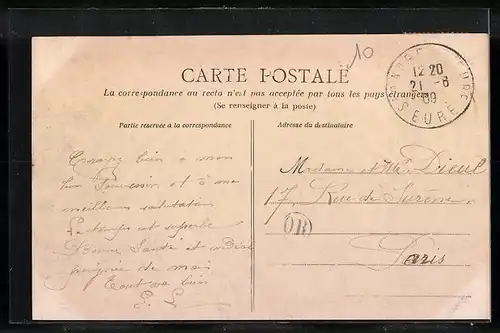 10
CARTE POSTALE
La correspondance au recto n'est pas acceptée par tous les pays étrangers
(Se renseigner à la poste)
12 20
21 -8
09
EURE
Partie réservée à la correspondance
Adresse du destinataire
Croyez bien à mon
bon Souvenir et à mes
meilleures salutations
Le temps est superbe
Bonne Santé et
de mais
Tout va bien
Madame et Mlle Dieul
17, Rue de Surène
OR
Paris